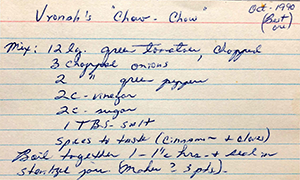 Vronah's "Chow-Chow"
Oct-1990
(Best one)
Mix: 12 lg. green tomatoes, chopped
3 chopped onions
2 " green peppers
2 c- vinegar
2 c- sugar
1 TBS- salt
Spices to taste (Cinnamon + Cloves)
Boil together 1- 1½ hrs- + seal in
sterilize jars (Makes 3 pts).